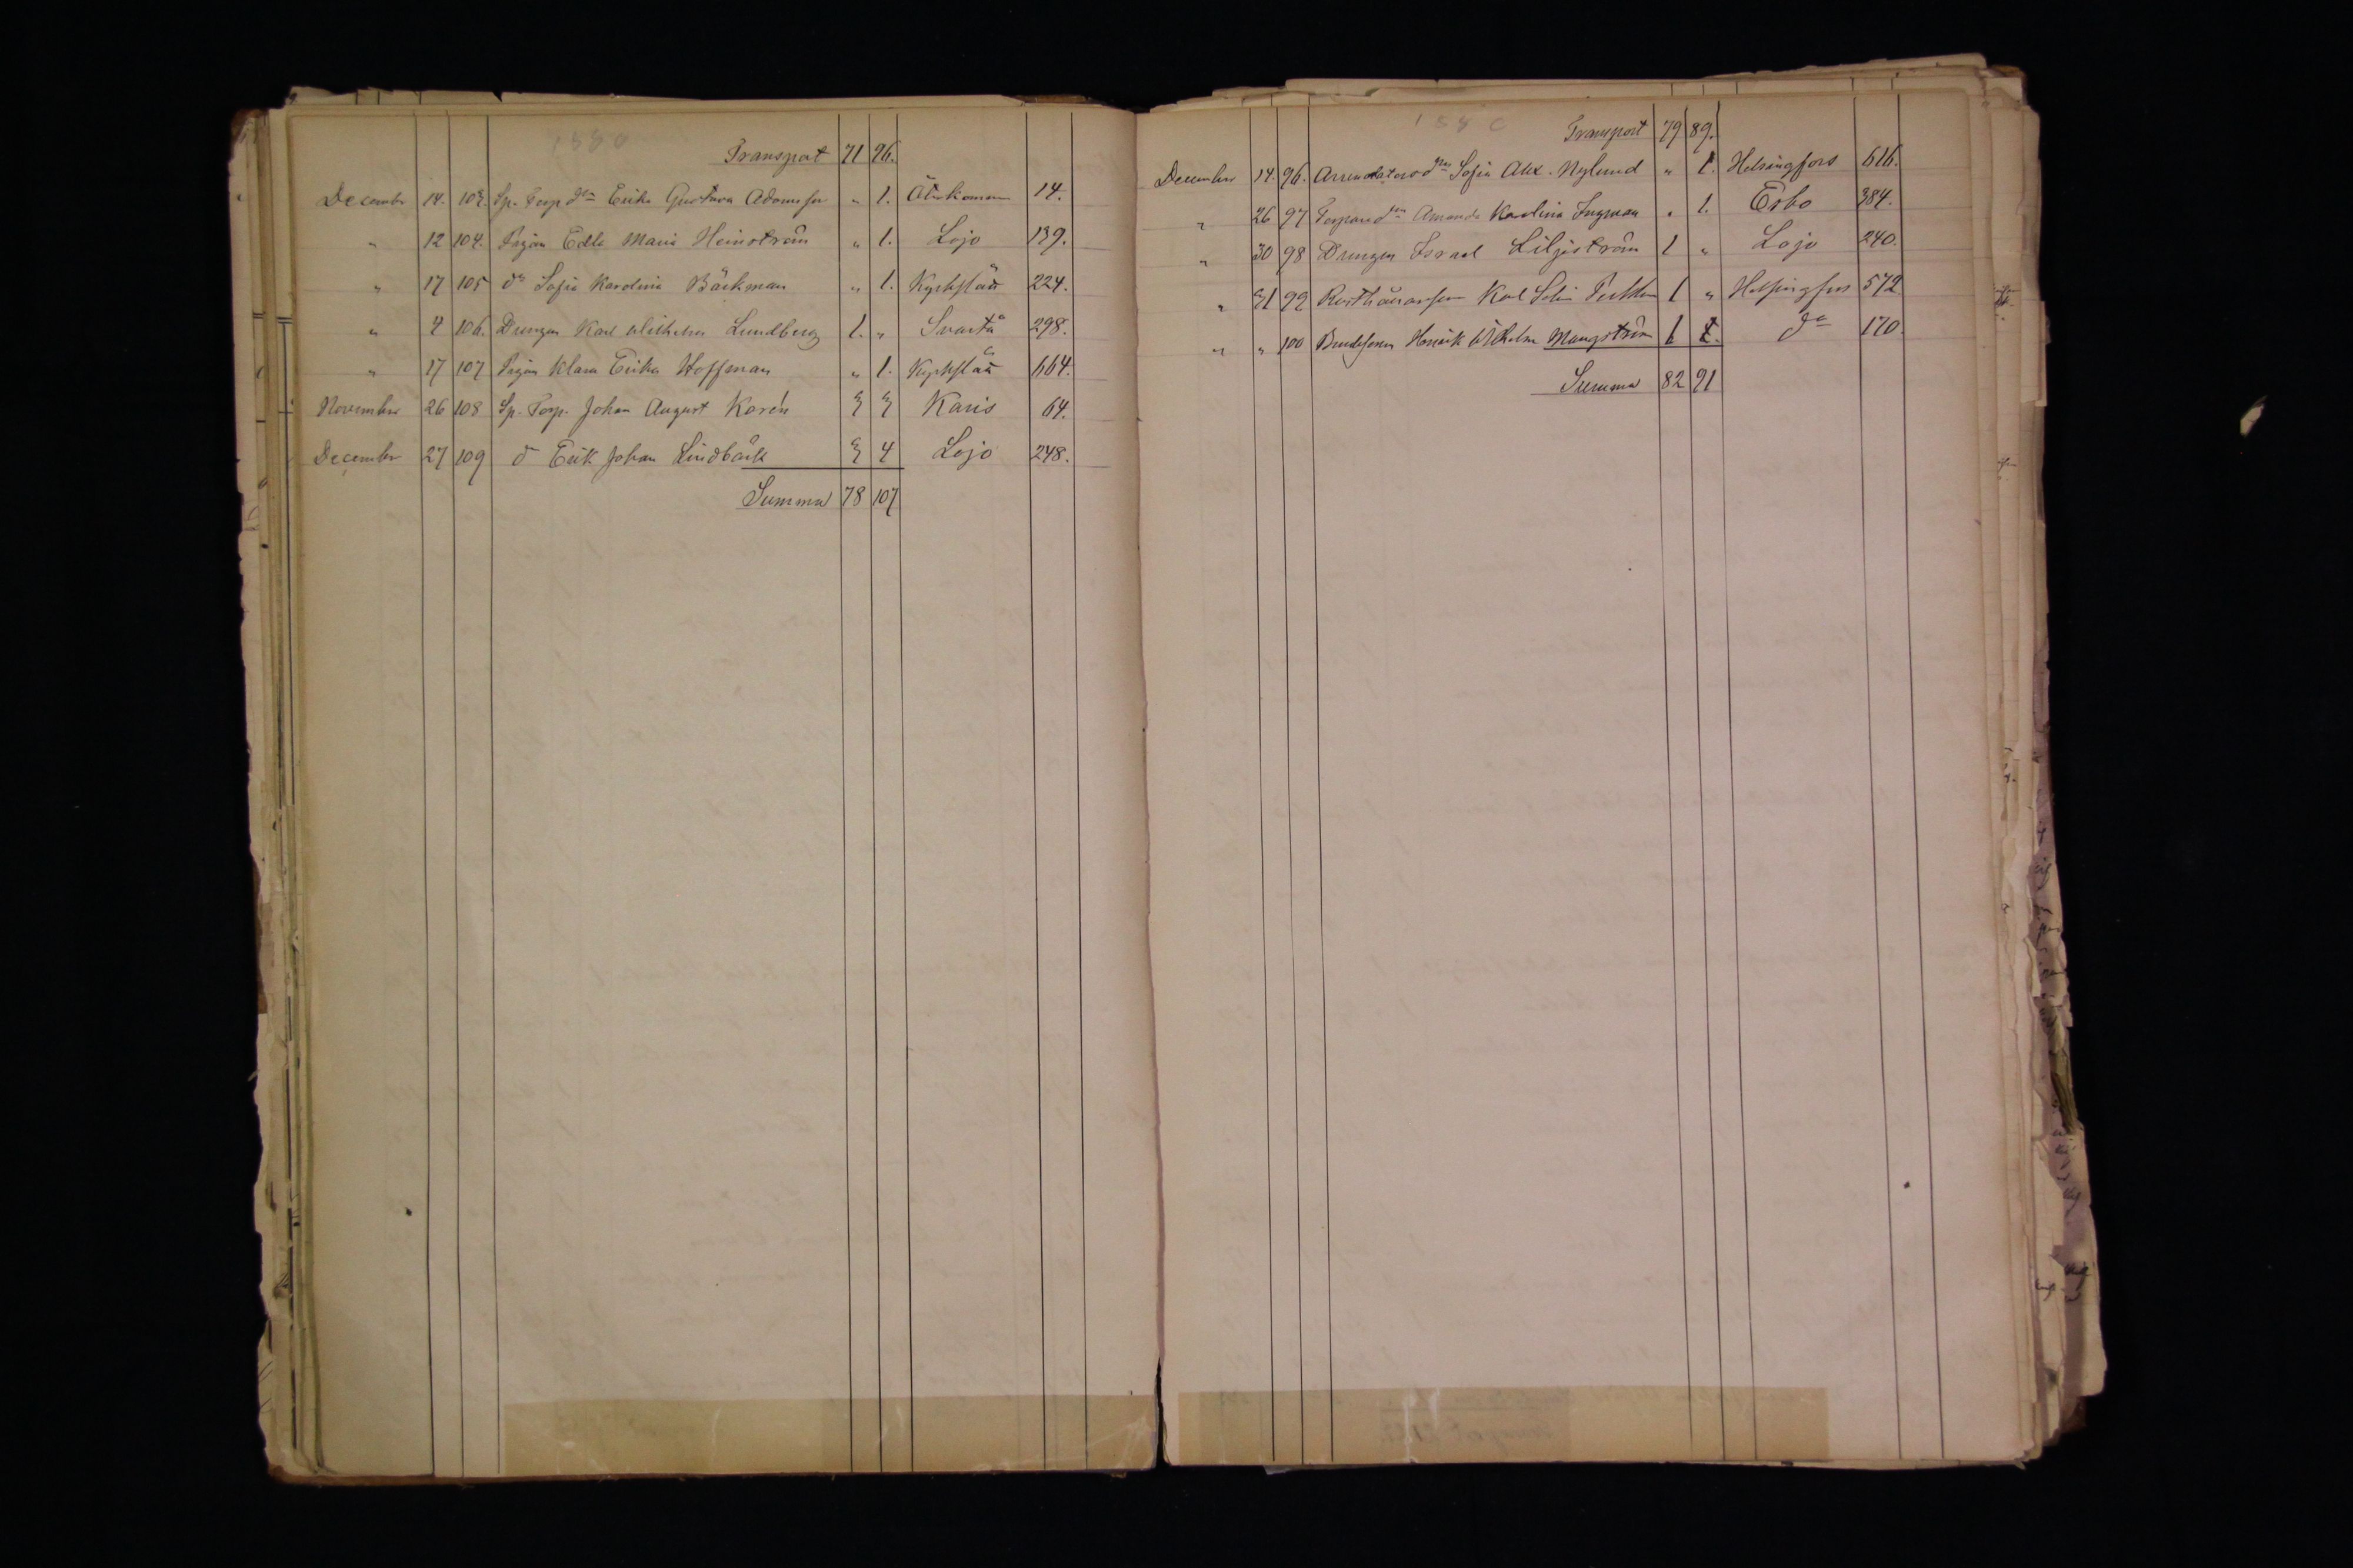 1880
Transport 71 96.
December 14. 103. Sp. Torp dn Erika Gustava Adamsson " 1. 14.
" 12 104. Pigan Edla Maria Heinström " 1. Lojo 139.
" 17 105 do Sofia Karolina Bäckman " 1. Kyrkslätt 224.
" 4 106. Drengen Karl Wilhelm Lundberg 1. " Svartå 298.
" 17 107 Pigan Klara Erika Hoffman " 1. Kyrkslätt 664.
November 26 108 Sp. Torp. Johan August Korén 3 3 Karis 64.
December 27 109 d Erik Johan Lindbäck 3 4 Lojo 248.
Summa 78 107
1880
Transport 79 89.
December 14. 96. Arrendators dn Sofia Alex. Nylund " 1. Helsingfors 616.
" 26 97 Torpare dn Amanda Karolina Ingman " 1. Esbo 384.
" 30 98 Drengen Israel Liljeström 1 " Lojo 240.
" 31 99 Karl 1 " Helsingfors 572
" " 100 Bondesonen Henrik Wilhelm Mangström 1 1. do 170.
Summa 82 91